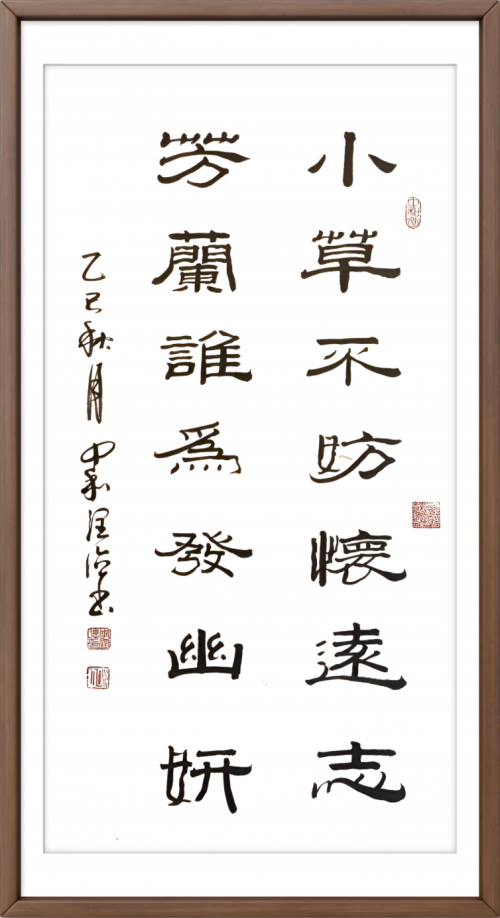 小草不妨懷遠志
芳蘭誰為發幽妍
乙巳秋月